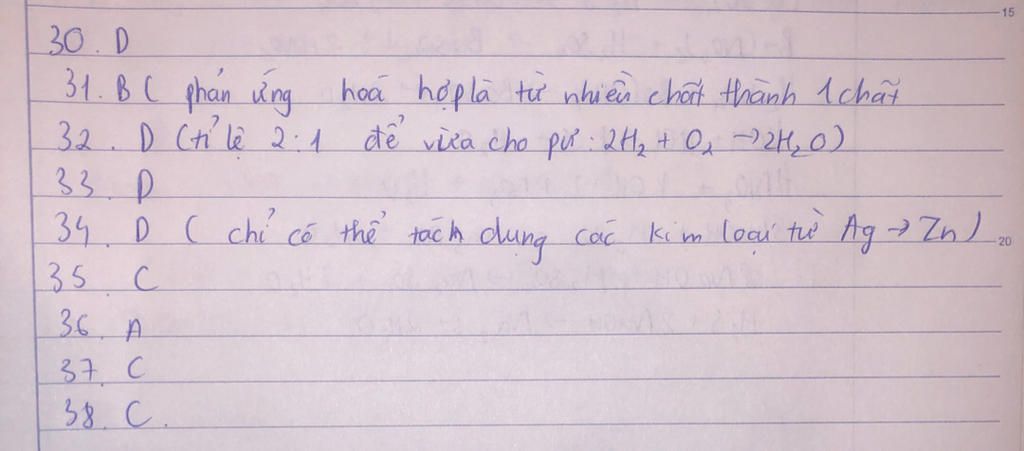 15
30. D
31. B ( phản ứng hoá hợp là từ nhiều chất thành 1 chất
32. D (tỉ lệ 2:1 để vừa cho pư: 2H₂ + O₂ → 2H₂O)
33. D
34. D ( chỉ có thể tách dụng các kim loại từ Ag → Zn)
20
35 C
36. A
37. C
38. C.